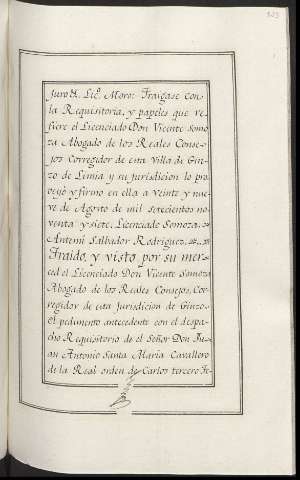 juro &. Lic.^do Moro: Traigase con
la Requisitoria, y papeles que re-
fiere el Licenciado Don Vicente Somo
za Abogado de los Reales Conse-
jos Corregidor de esta Villa de Gin
zo de Limia y su jurisdicion lo pro
veyó y firmo en ella a veinte y nue
ve de Agosto de mil setecientos no
venta y siete. Licenciado Somoza.
Antemi Salbador Rodriguez
Traido, y visto por su mer-
ced el Licenciado Don Vicente Somoza
Abogado de los Reales Consejos, Cor-
regidor de esta Jurisdicion de Ginzo
el pedimento antecedente con el despa
cho Requisitorio de el Señor Don Ju
an Antonio Santa Maria Cavallero
de la Real orden de Carlos tercero In-